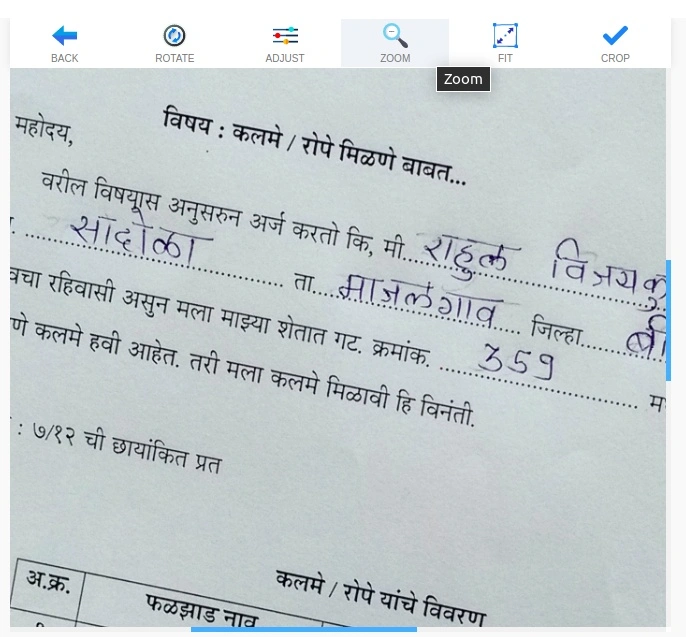 BACK ROTATE ADJUST ZOOM FIT CROP
Zoom
महोदय,
विषय : कलमे / रोपे मिळणे बाबत...
वरील विषयास अनुसरुन अर्ज करतो कि, मी. राहुल विजयकु
सादोळा ता. माजलगाव जिल्हा बी
वचा रहिवासी असुन मला माझ्या शेतात गट. क्रमांक. 359 म
णे कलमे हवी आहेत. तरी मला कलमे मिळावी हि विनंती.
: ७/१२ ची छायांकित प्रत
कलमे / रोपे यांचे विवरण
अ.क्र. फळझाड नाव